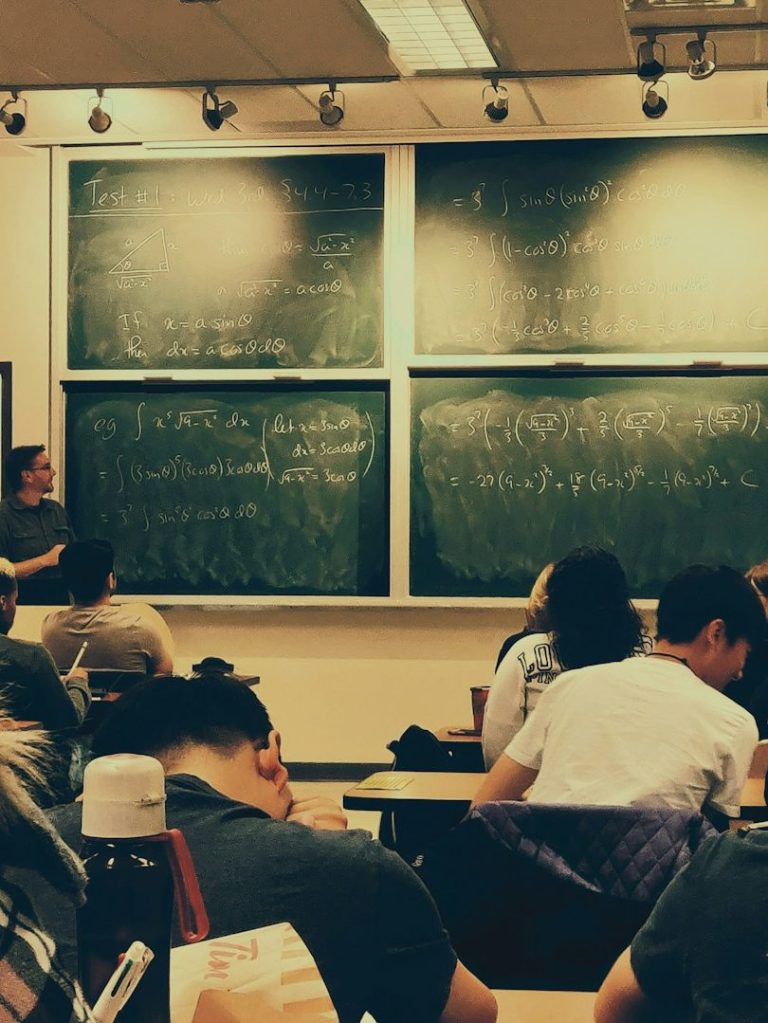 Test #1 : Wed 3rd §4.4-7.3
a
x
θ
√a²-x²
then cosθ = √a²-x² / a
∴ √a²-x² = a cosθ
If x = a sinθ
then dx = a cosθ dθ
eg ∫ x⁵ √9-x² dx (let x = 3 sinθ
dx = 3cosθdθ
√9-x² = 3cosθ)
= ∫ (3 sinθ)⁵ (3cosθ) 3cosθ dθ
= 3⁷ ∫ sin⁵θ cos²θ dθ
= 3⁷ ∫ sinθ (sin²θ)² cos²θ dθ
= 3⁷ ∫ (1-cos²θ)² cos²θ sinθ dθ
= 3⁷ ∫ (cos²θ - 2cos⁴θ +
= 3⁷ (-1/3 cos³θ + 2/5 cos⁵θ - 1/7 cos⁷θ) + C
= 3⁷ (-1/3 (√9-x²/3)³ + 2/5 (√9-x²/3)⁵ - 1/7 (√9-x²/3)⁷)
= -27 (9-x²)^3/2 + 18/5 (9-x²)^5/2 - 1/7 (9-x²)^7/2 + C
LO
Tim